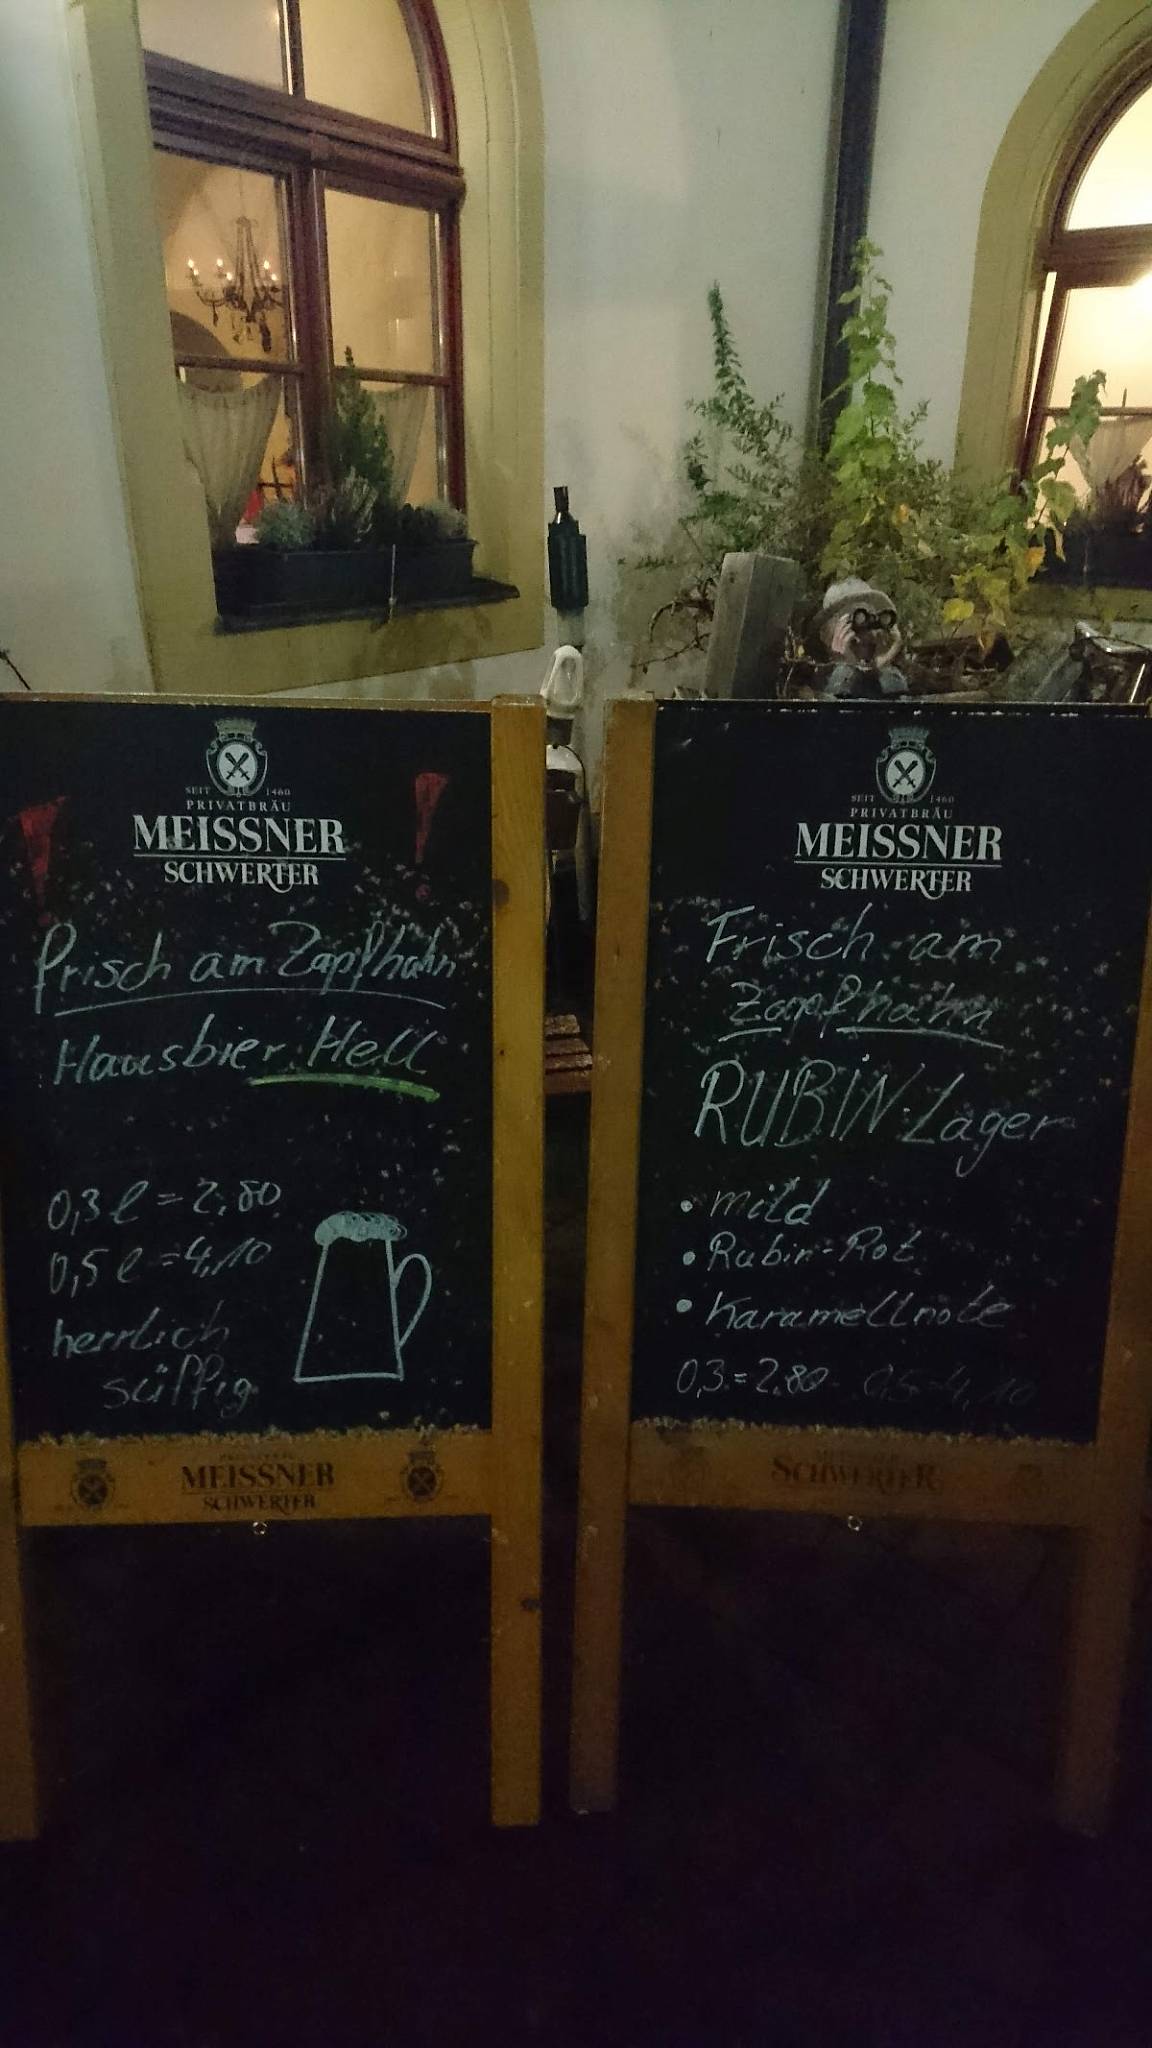 SEIT 1460
PRIVATBRÄU
MEISSNER
SCHWERTER
Frisch am Zapfhahn
Hausbier Hell
0,3 l = 2,80
0,5 l = 4,10
herrlich
süffig
MEISSNER
SCHWERTER
SEIT 1460
PRIVATBRÄU
MEISSNER
SCHWERTER
Frisch am
Zapfhahn
RUBIN-Lager
• mild
• Rubin-Rot
• Karamellnote
0,3 = 2,80 0,5 = 4,10
SCHWERTER